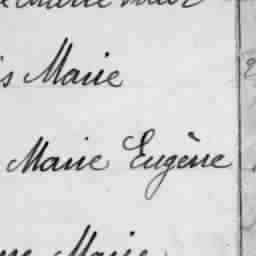 s Marie
Marie Eugène
Marie